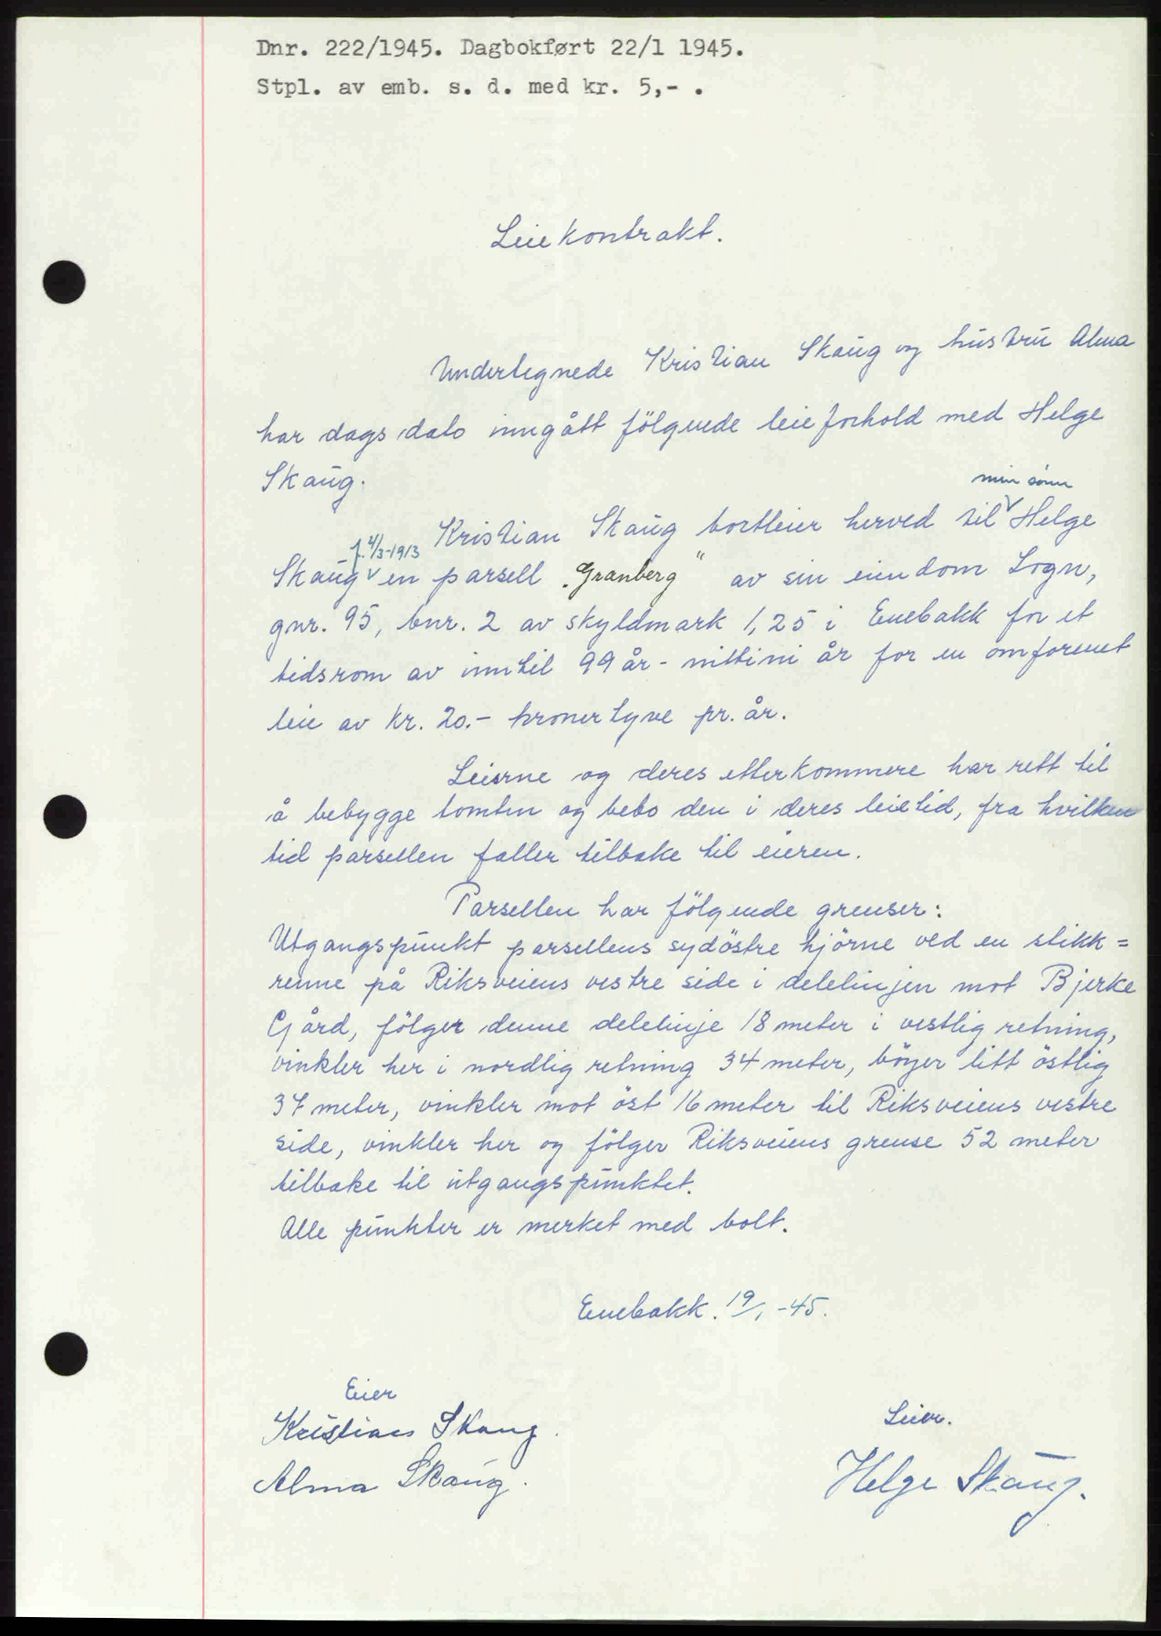 Dnr. 222/1945. Dagbokført 22/1 1945.
Stpl. av emb. s. d. med kr. 5,- .
Leiekontrakt.
Undertegnede Kristian Skaug og hustru Alma
har dags dato inngått fölgende leieforhold med Helge
Skaug.
min sönn
Kristian Skaug bortleier herved til Helge
f. 4/3-1913
Skaug en parsell "Granberg" av sin eiendom Sogn,
gnr. 95, bnr. 2 av skyldmark 1,25 i Enebakk for et
tidsrom av inntil 99 år - nittini år for en omforenet
leie av kr. 20.- kroner tyve pr. år.
Leierne og deres etterkommere har rett til
å bebygge tomten og bebo den i deres leietid, fra hvilken
tid parsellen faller tilbake til eieren.
Parsellen har fölgende grenser:
Utgangspunkt parsellens sydöstre hjörne ved en stikk=
renne på Riksveiens vestre side i delelinjen mot Bjerke
Gård, fölger denne delelinje 18 meter i vestlig retning,
vinkler her i nordlig retning 34 meter, böyer litt östlig
37 meter, vinkler mot öst 16 meter til Riksveiens vestre
side, vinkler her og fölger Riksveiens grense 52 meter
tilbake til utgangspunktet.
Alle punkter er merket med bolt.
Enebakk. 19/1 -45.
Eier
Leier.
Kristian Skaug.
Alma Skaug.
Helge Skaug.